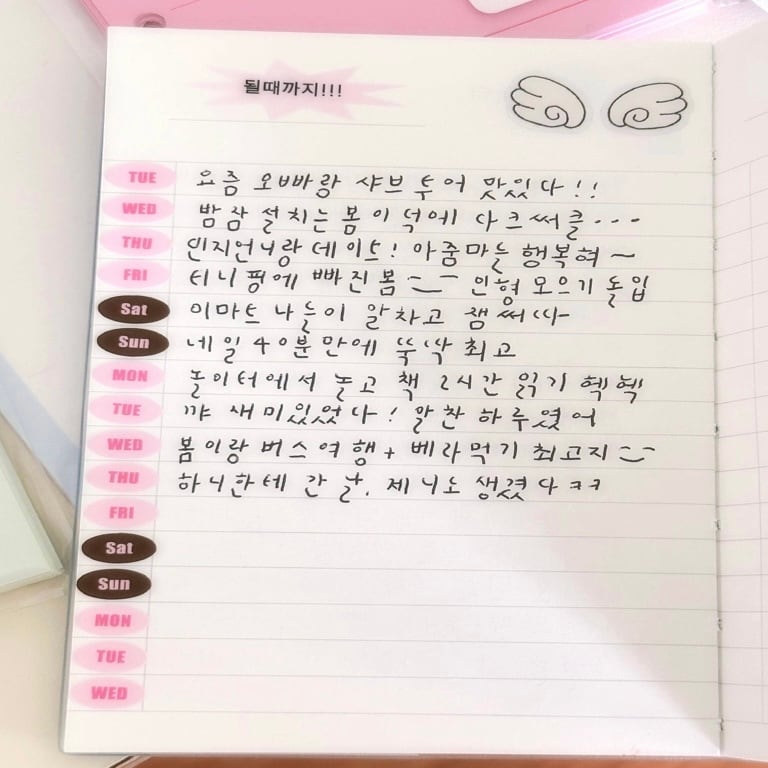 될때까지!!!
TUE 요즘 오빠랑 샤브 투어 맛있다!!
WED 밤잠 설치는 봄이 덕에 다크써클...
THU 민지언니랑 데이트! 아줌마들 행복혀~
FRI 티니핑에 빠진 봄 인형 모으기 돌입
Sat 이마트 나들이 알차고 잼써따
Sun 네일 40분만에 뚝딱 최고
MON 놀이터에서 놀고 책 2시간 읽기 헥헥
TUE 꺄 재미있었다! 알찬 하루였어
WED 봄이랑 버스여행+베라먹기 최고지
THU 하니한테 간 날. 제니도 생겼다ㅋㅋ
FRI
Sat
Sun
MON
TUE
WED